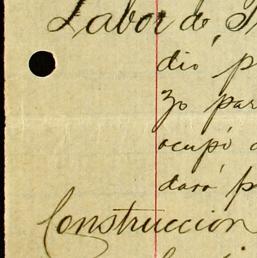 Labor de
dió p
zo par
ocupó
dará p
Construccion